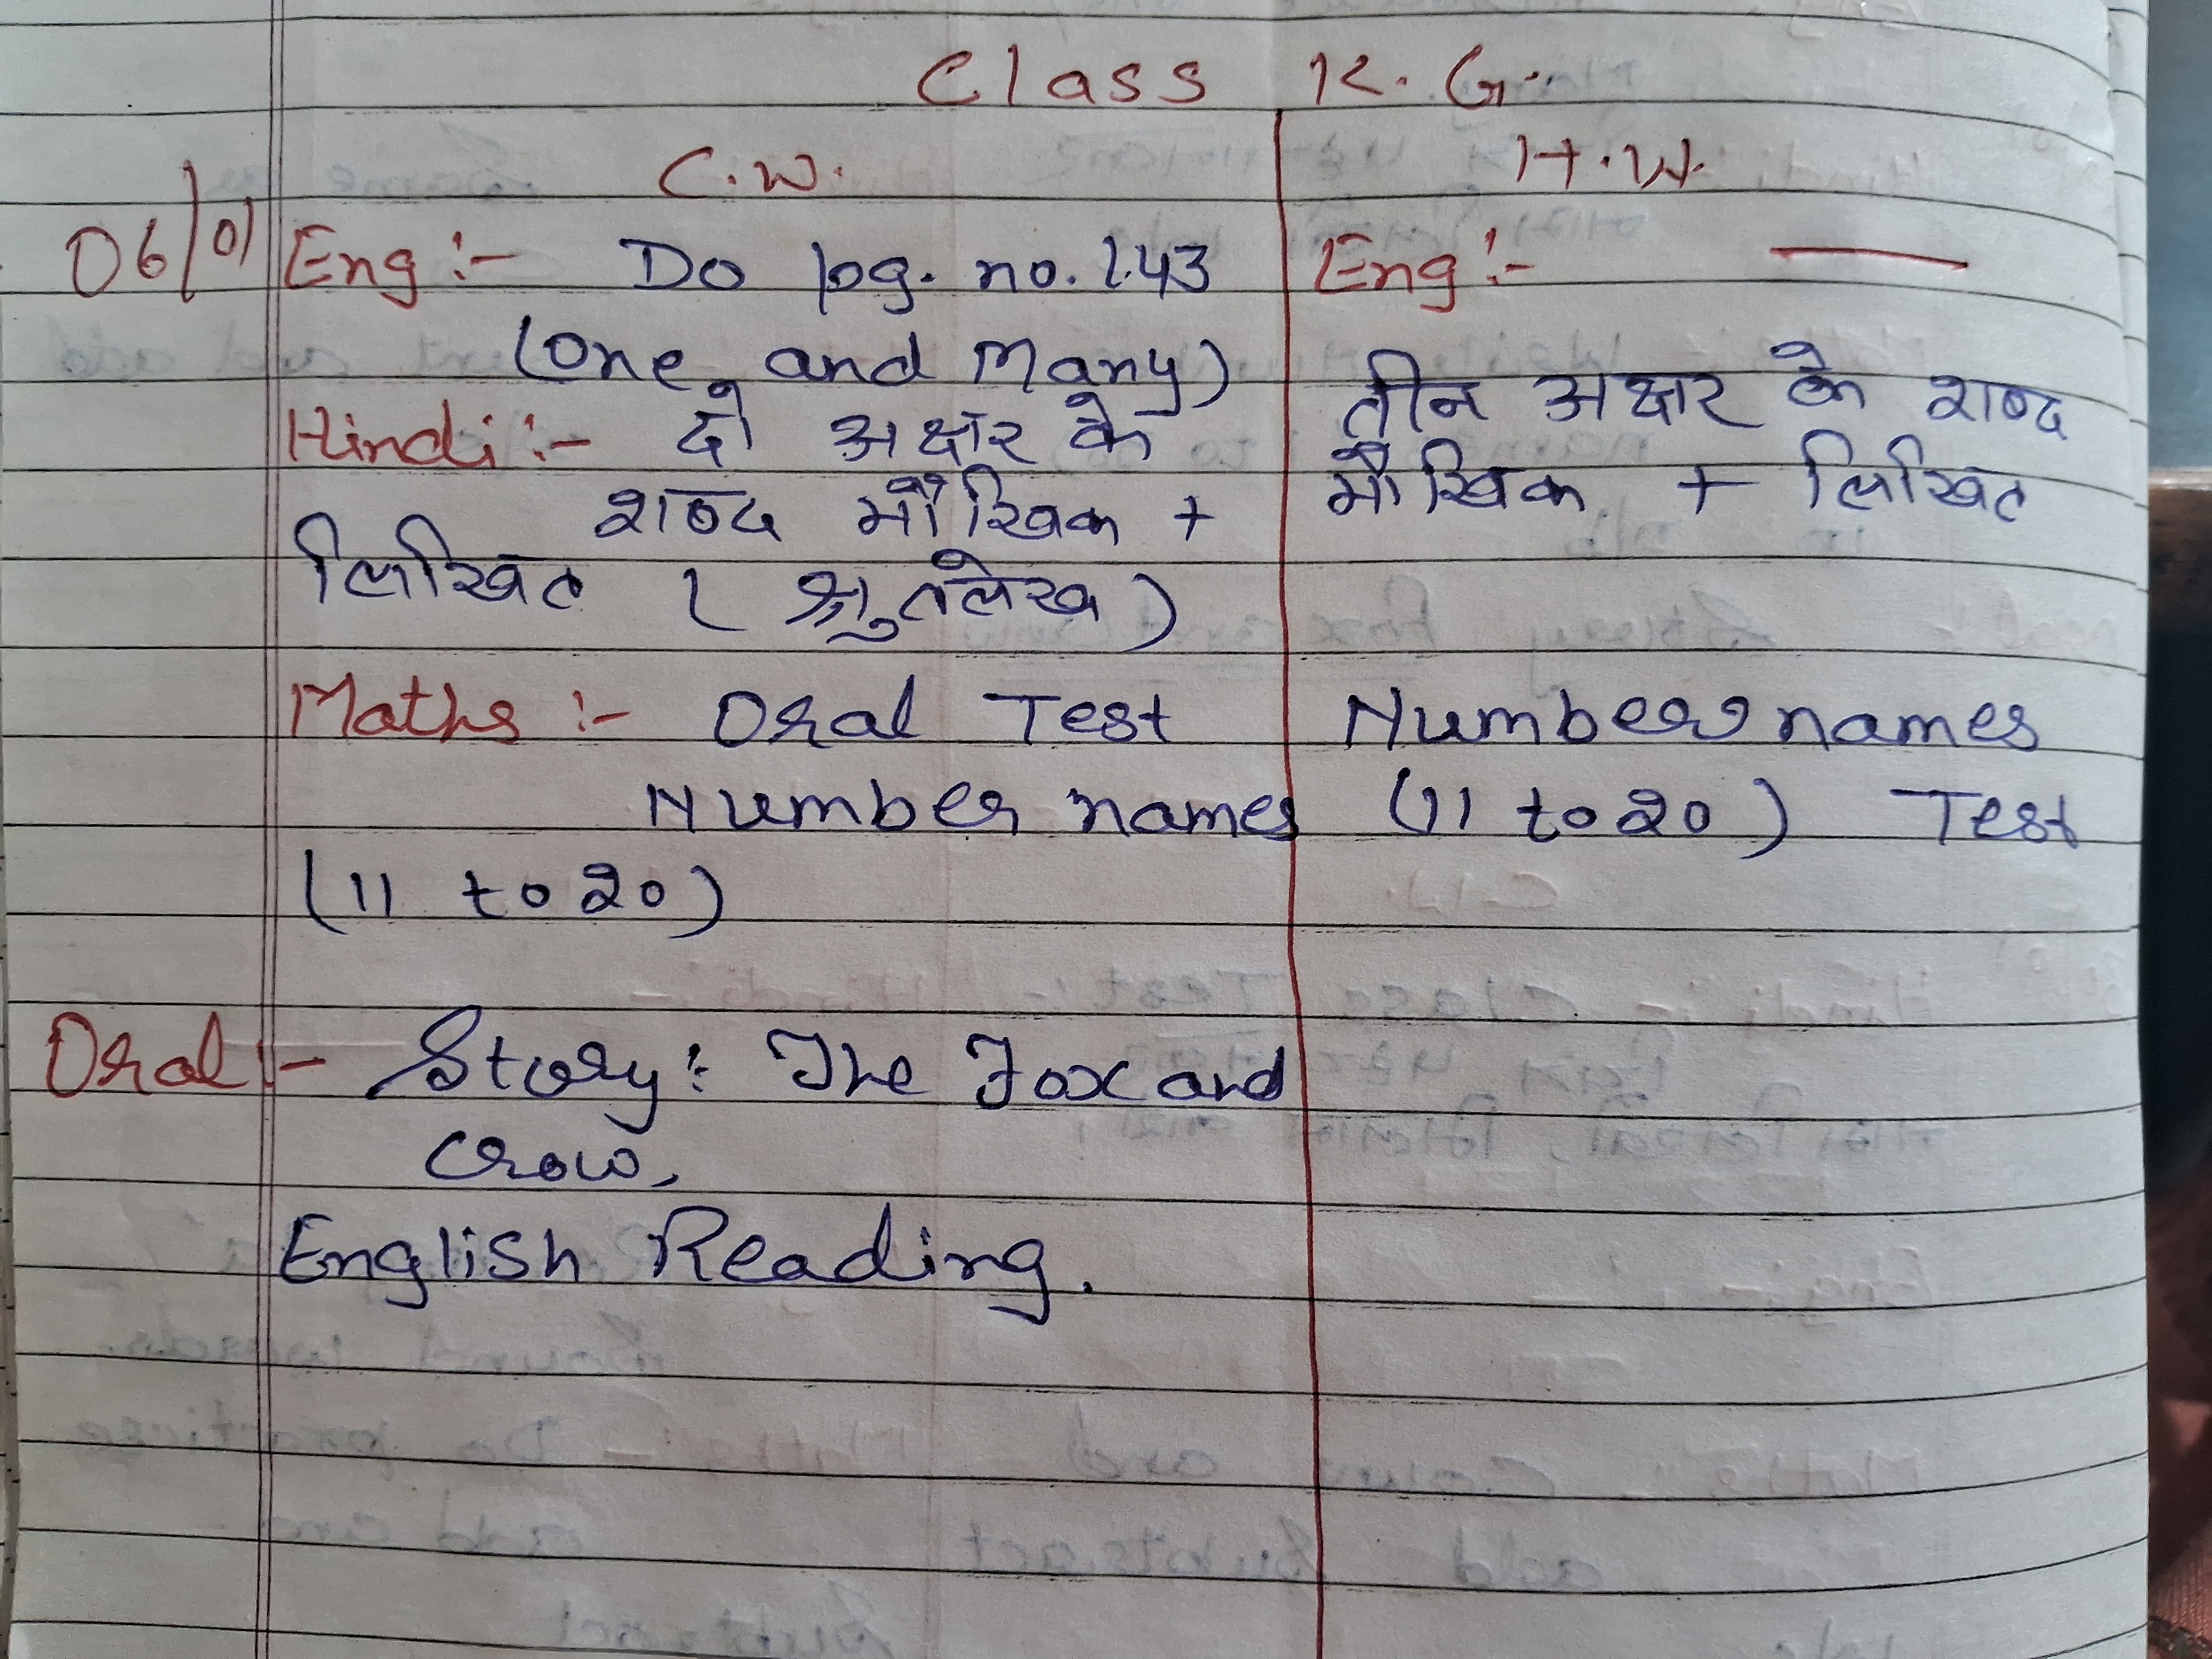 Class K. G.
C.W. H.W.
06/01 Eng :- Do pg. no. 143 Eng :- —
(One and Many)
Hindi :- दो अक्षर के तीन अक्षर के शब्द
शब्द मौखिक + मौखिक + लिखित
लिखित ( श्रुतलेख )
Maths :- Oral Test Number names
Number names (11 to 20) Test
(11 to 20)
Oral :- Story : The Fox and
Crow,
English Reading.